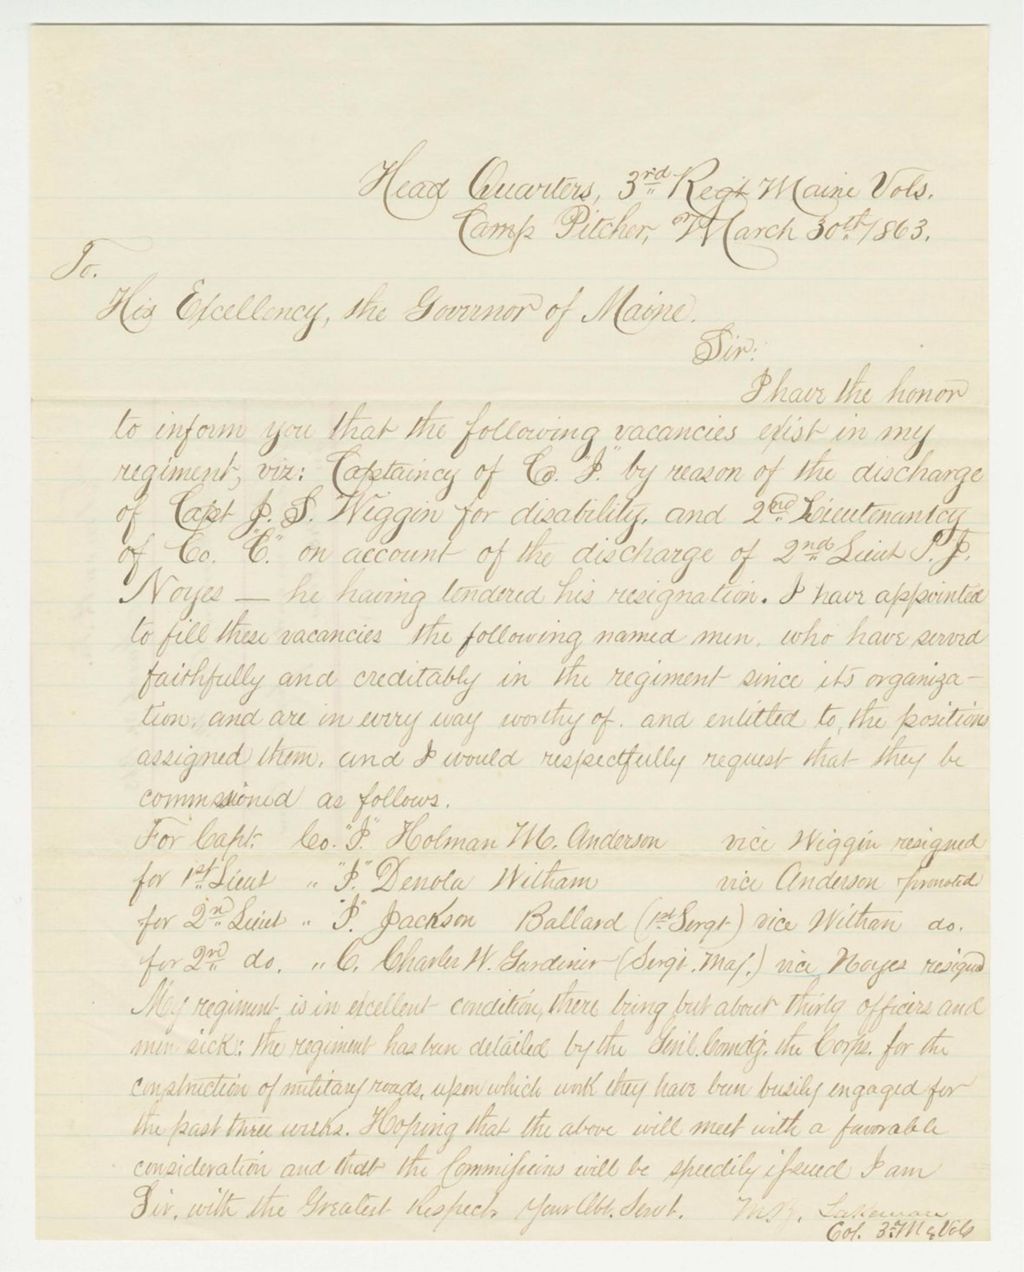 Head Quarters, 3rd Regt Maine Vols.
Camp Pitcher, March 30th 1863.
To.
His Excellency, the Governor of Maine.
Sir:
I have the honor
to inform you that the following vacancies exist in my
regiment, viz: Captaincy of Co. "I" by reason of the discharge
of Capt J. S. Wiggin for disability, and 2nd Lieutenantcy
of Co. "C." on account of the discharge of 2nd Lieut J.
Noyes — he having tendered his resignation. I have appointed
to fill these vacancies the following named men, who have served
faithfully and creditably in the regiment since its organiza-
tion, and are in every way worthy of, and entitled to, the position
assigned them, and I would respectfully request that they be
commissioned as follows.
For Capt. Co. "I" Holman M. Anderson vice Wiggin resigned
for 1st Lieut " "I" Denola Witham vice Anderson promoted
for 2nd Lieut " "I". Jackson Ballard (1st Sergt) vice Witham do.
for 2nd do. " C. Charles W. Gardiner (Sergt. Maj.) vice Noyes resigned
My regiment, is in excellent condition, there being but about thirty officers and
men sick: the regiment has been detailed by the Genl. Comdg. the Corps. for the
construction of military roads, upon which work they have been busily engaged for
the past three weeks. Hoping that the above will meet with a favorable
consideration and that the Commissions will be speedily issued I am
Sir, with the Greatest Respect, Your Obt. Servt. M. B. Lakeman
Col. 3rd Me Vols